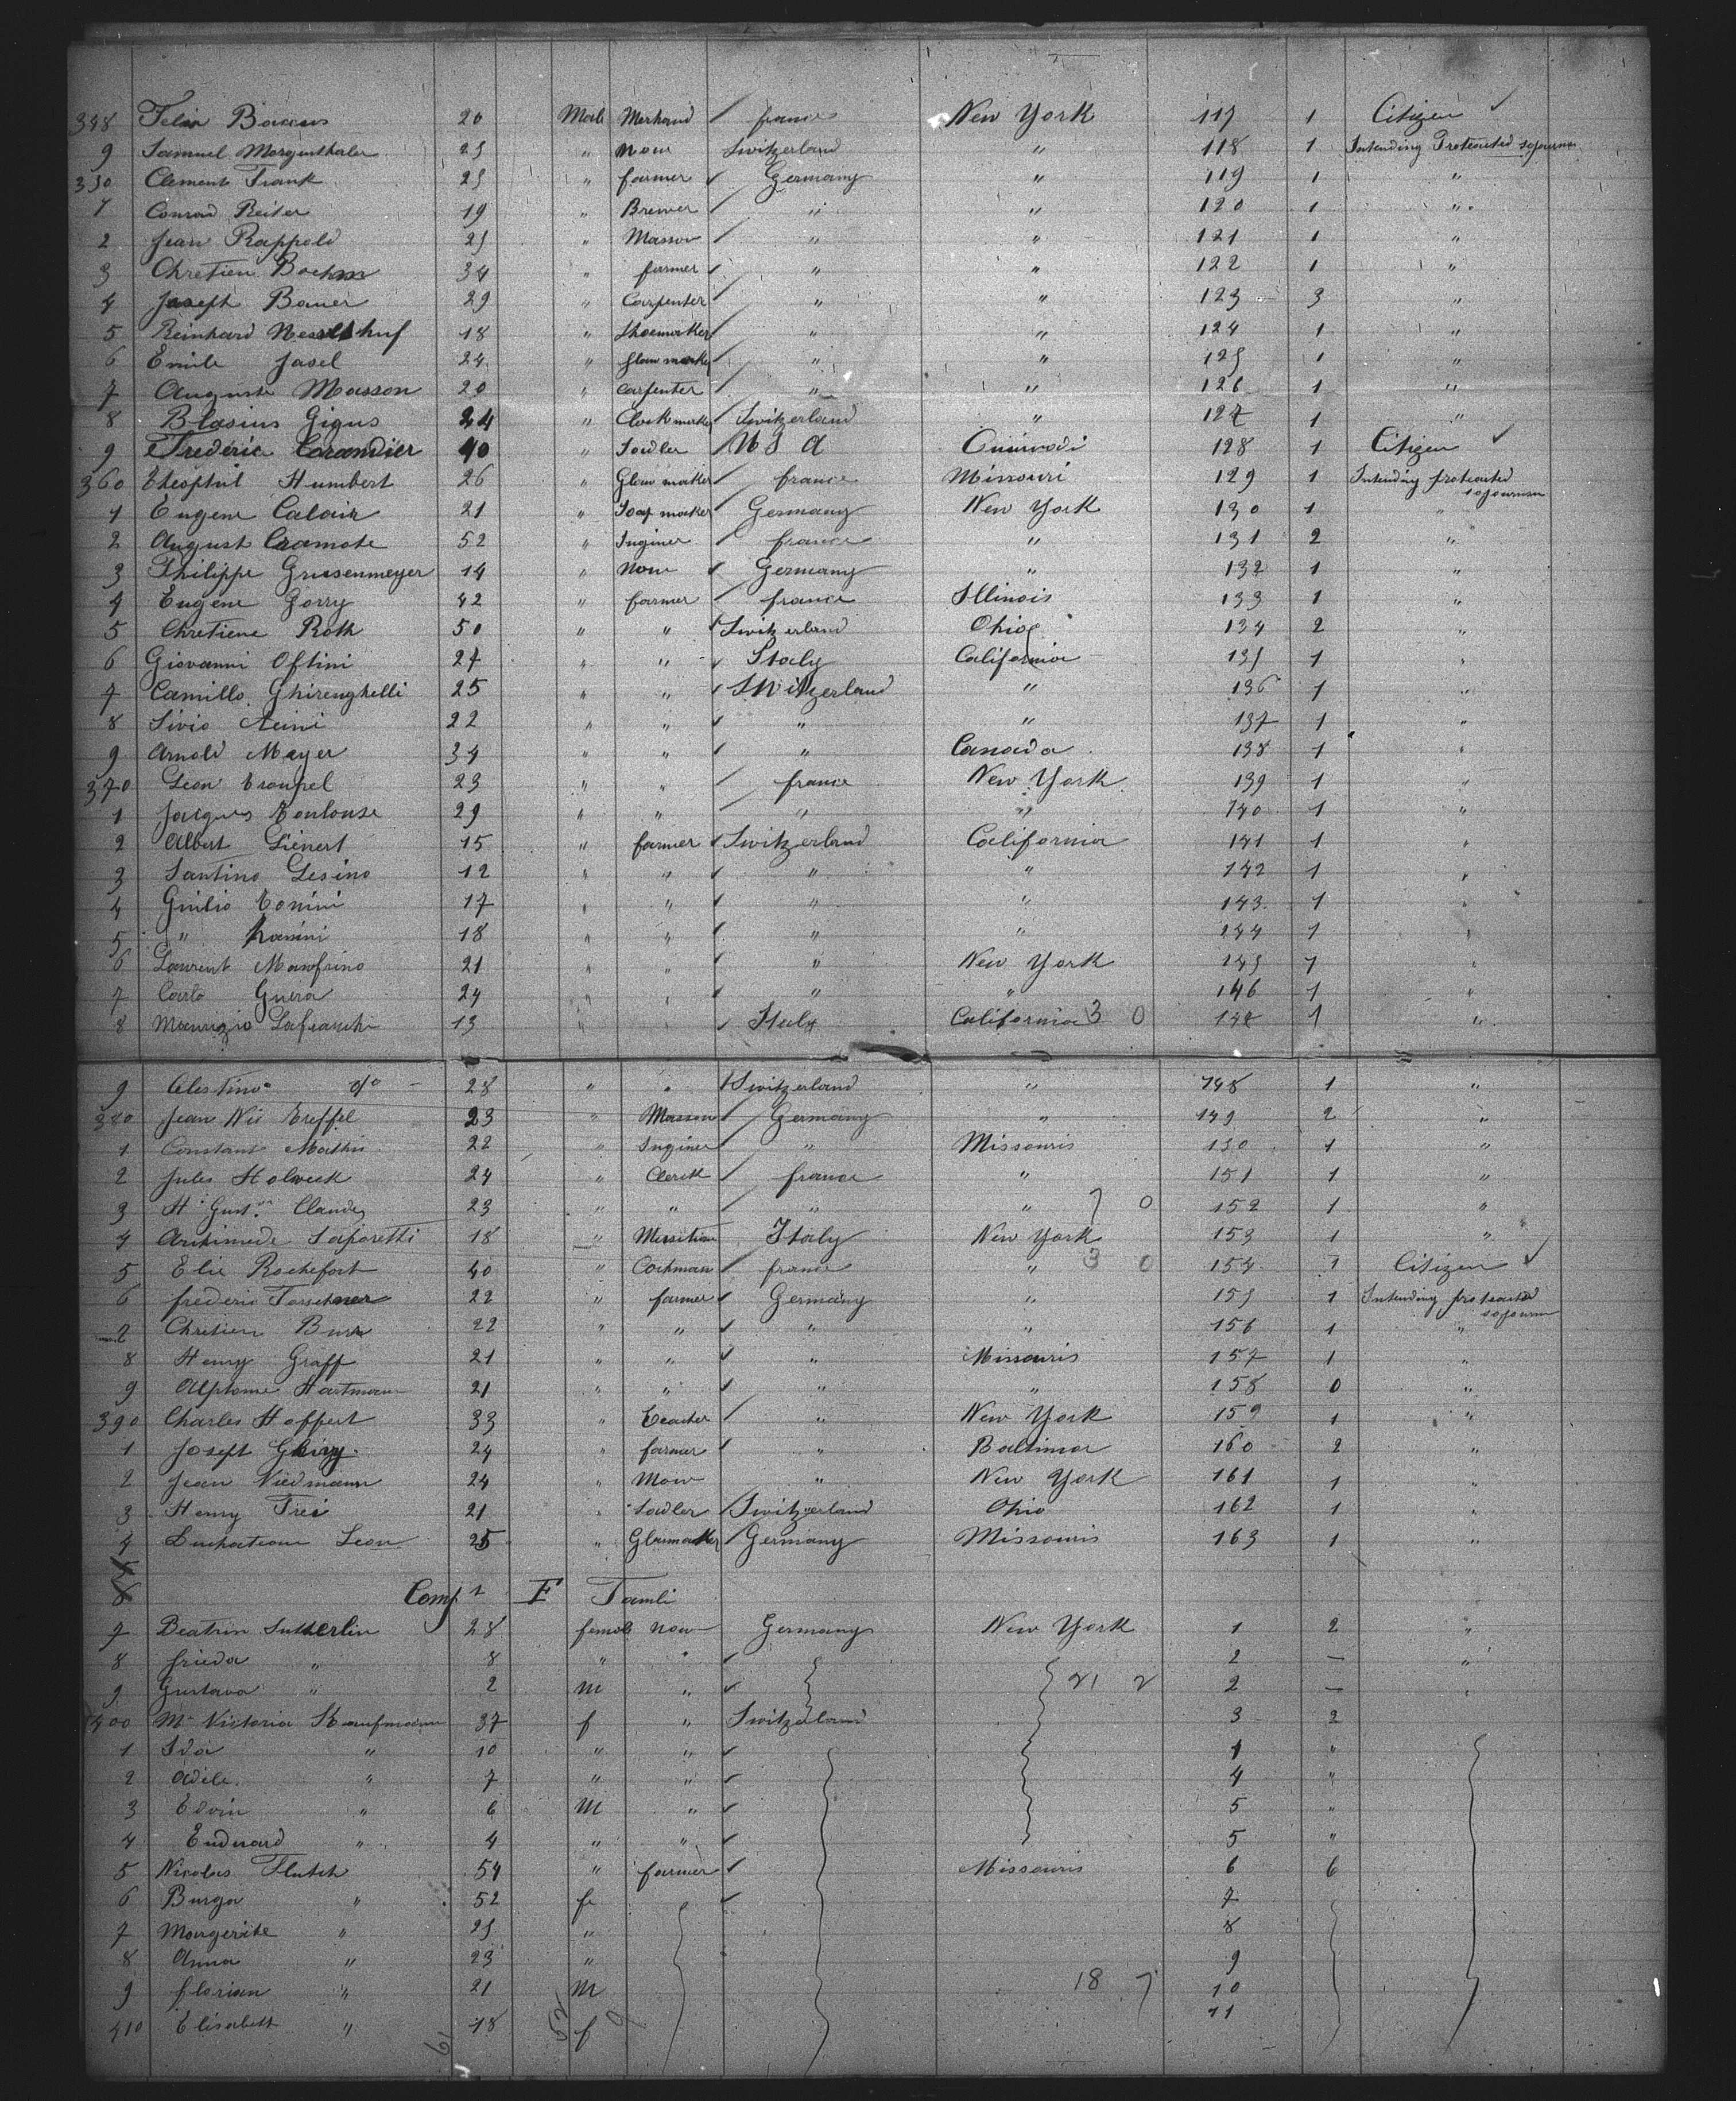 348 Felix Baccus 20 Male Merchand ✓ france New York 117 1 Citizen ✓
9 Samuel Morgenthaler 25 " none Switzerland " 118 1 Intending Protracted sojourn
350 Clement Frank 25 " farmer ✓ Germany " 119 1 "
1 Conrad Reiter 19 " Brewer ✓ " " 120 1 "
2 Jean Rappold 25 " Masson ✓ " " 121 1 "
3 Chretien Boehm 34 " farmer ✓ " " 122 1 "
4 Joseph Bauer 29 " Carpenter ✓ " " 123 3 "
5 Reinhard 18 " Shoemaker ✓ " " 124 1 "
6 Emile Jasel 24 " ✓ " " 125 1 "
7 Auguste Masson 20 " carpenter ✓ " " 126 1 "
8 Blasius Gigus 24 " Clockmaker ✓ Switzerland " 127 1 "
9 Frederic Carandier 40 " Sadler ✓ U S A 128 1 Citizen ✓
360 Theophil Humbert 26 " Glass maker ✓ france Missouri 129 1 Intending protracted sojournn
1 Eugene Calair 21 " Soap maker ✓ Germany New York 130 1 "
2 August Cramote 52 " Inginer ✓ france " 131 2 "
3 Philippe Griesenmeyer 14 " none ✓ Germany " 132 1 "
4 Eugene Gorry 42 " farmer ✓ france Illinois 133 1 "
5 Chretiene Roth 50 " " ✓ Switzerland Ohio 134 2 "
6 Giovanni Oftini 27 " " ✓ Italy California 135 1 "
7 Camillo Ghirenghelli 25 " " ✓ Switzerland " 136 1 "
8 Livio 22 " " ✓ " " 137 1 "
9 Arnold Mayer 34 " " ✓ " Canada 138 1 "
370 Leon 23 " " ✓ france New York 139 1 "
1 Jacques Toulouse 29 " " ✓ " " 140 1 "
2 Albert Lienert 15 " farmer ✓ Switzerland California 141 1 "
3 Santino Lesino 12 " " ✓ " " 142 1 "
4 Giulio Tonini 17 " " ✓ " " 143 1 "
5 " 18 " " ✓ " " 144 1 "
6 Laurent Manfrino 21 " " ✓ " New York 145 1 "
7 Carlo Guera 24 " " ✓ " " 146 1 "
8 Maurizio Lafranchi 13 " ✓ Italy California 3 0 147 1 "
9 Celestino do 28 " " ✓ Switzerland " 148 1 "
380 Jean Nic Treffel 23 " Masson ✓ Germany " 149 2 "
1 Constant Mathis 22 " Inginer ✓ " Missouris 150 1 "
2 Jules Holweck 24 " Clerck ✓ france " 151 1 "
3 Claude 23 " " ✓ " " 7 0 152 1 "
4 Archimede Saporetti 18 " Italy New York 153 1 "
5 Elie Rochefort 40 " Cochman ✓ france " 3 0 154 1 Citizen ✓
6 frederic 22 " farmer ✓ Germany " 155 1 Intending protracted sojourn
7 Chretien 22 " " ✓ " " 156 1 "
8 Henry Graff 21 " " ✓ " Missouris 157 1 "
9 Alphonse Hartmann 21 " " ✓ " " 158 0 "
390 Charles Hoffert 33 " Teacher ✓ " New York 159 1 "
1 Joseph 24 " farmer ✓ " Baltimor 160 2 "
2 Jean Niedmann 24 " " New York 161 1 "
3 Henry Frei 21 " Sadler ✓ Switzerland Ohio 162 1 "
4 Duchateau Leon 25 " Glasmaker ✓ Germany Missouris 163 1 "
5
6 Comp 1 F Famli
7 Beatrix Sutterlin 28 female none Germany New York 1 2 "
8 frieda " 8 " " ✓ 2 — "
9 Gustava " 2 m " ✓ 21 2 2 —
400 Me Victoria Kaufmann 37 f " Switzerland 3 2
1 Ida " 10 " " ✓ 4 "
2 Adele " 7 " " ✓ 4 "
3 Edvin " 6 M " ✓ 5 "
4 Eudward " 4 " " ✓ 5 "
5 Nicolas Flutsch 54 " farmer ✓ Missouris 6 6
6 Burga " 52 fe ✓ 7
7 Margerite " 25 " 8
8 Anna " 23 " 9
9 florian " 21 M 18 7 10
410 Elisabeth " 18 f 11